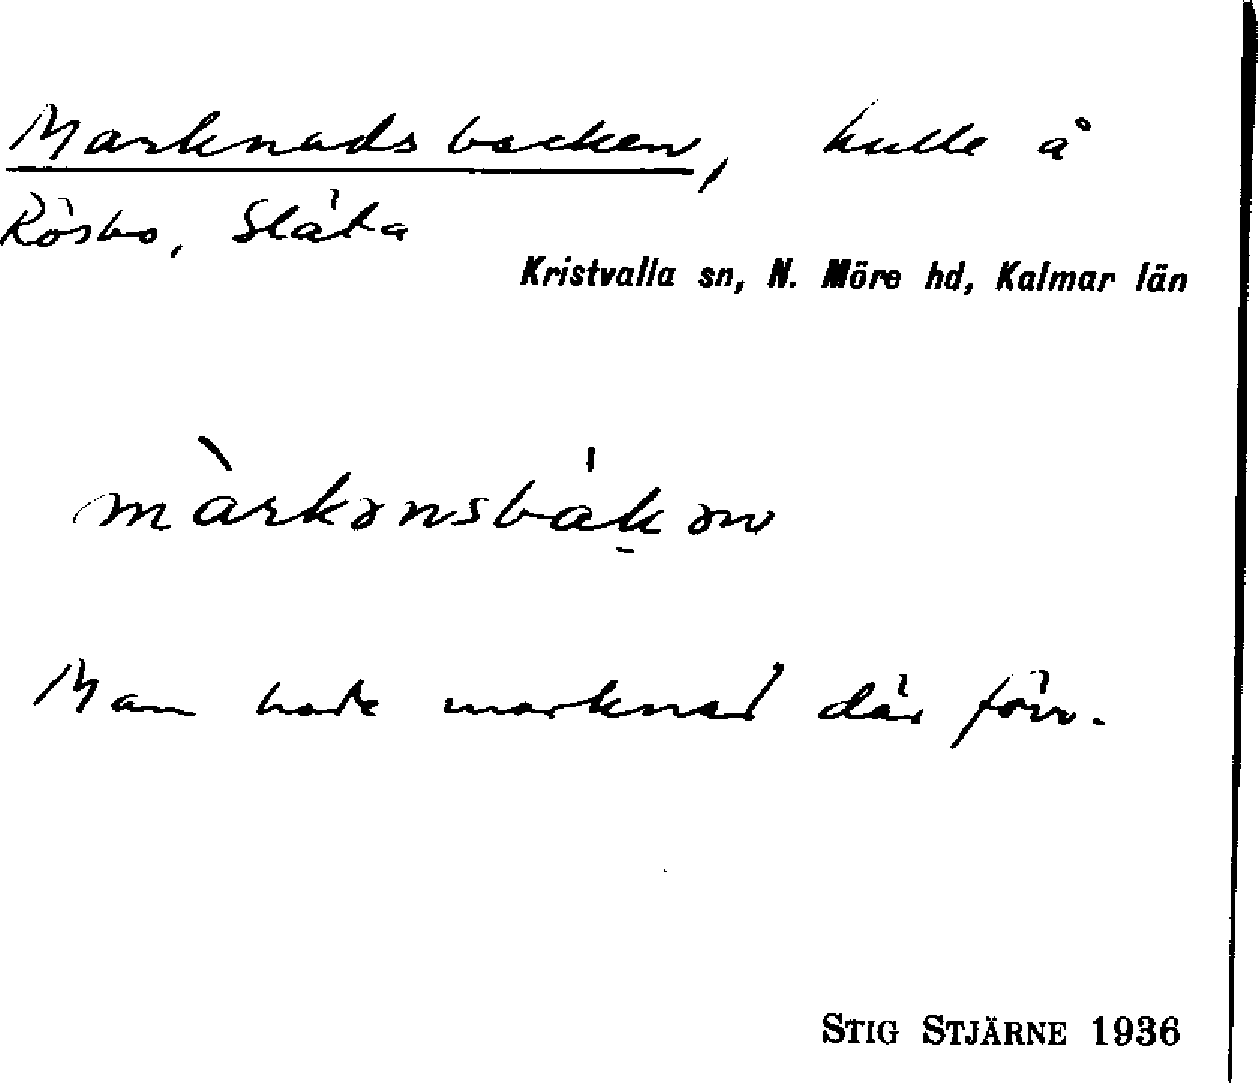 Marknadsbacken, kulle å
Rösbo, Släta
Kristvalla sn, N. Möre hd, Kalmar län
màrkənsbák̠ən
Man hade marknad där förr.
STIG STJÄRNE 1936